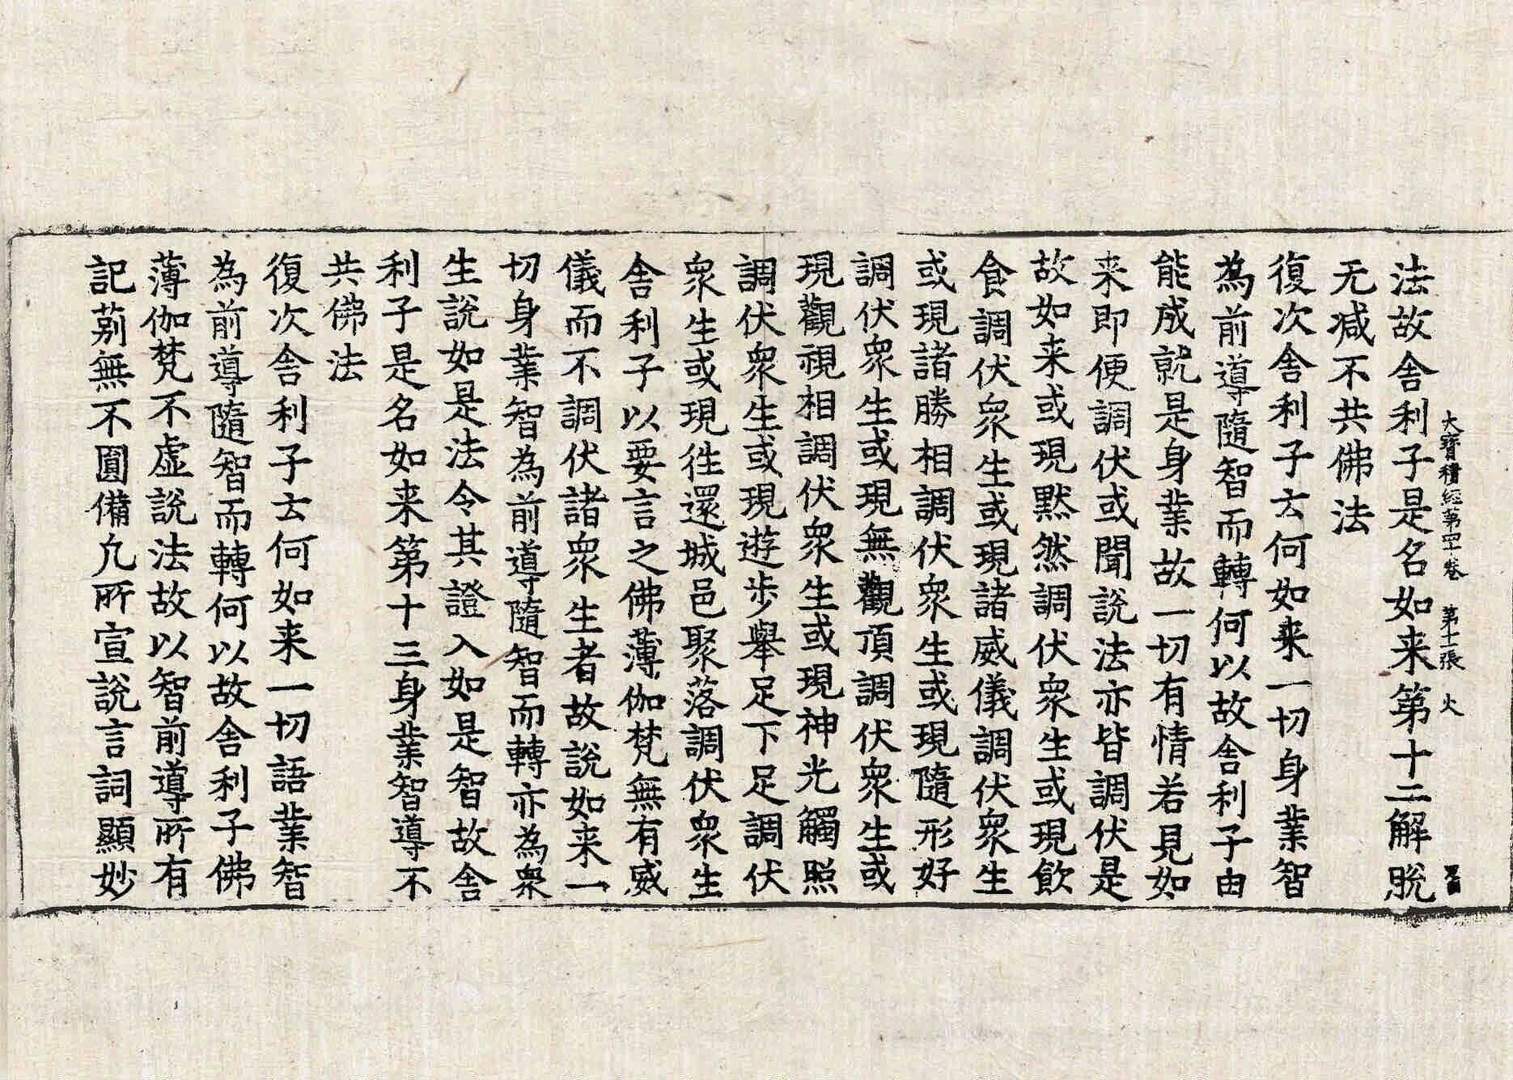 大寶積經第四十卷 第十二張 火
法故舍利子是名如来第十二解脫
无減不共佛法
復次舍利子云何如来一切身業智
為前導隨智而轉何以故舍利子由
能成就是身業故一切有情若見如
来即便調伏或聞說法亦皆調伏是
故如来或現默然調伏衆生或現飲
食調伏衆生或現諸威儀調伏衆生
或現諸勝相調伏衆生或現隨形好
調伏衆生或現無觀頂調伏衆生或
現觀視相調伏衆生或現神光觸照
調伏衆生或現遊步舉足下足調伏
衆生或現往還城邑聚落調伏衆生
舍利子以要言之佛薄伽梵無有威
儀而不調伏諸衆生者故說如来一
切身業智為前導隨智而轉亦為衆
生說如是法令其證入如是智故舍
利子是名如来第十三身業智導不
共佛法
復次舍利子云何如来一切語業智
為前導隨智而轉何以故舍利子佛
薄伽梵不虛說法故以智前導所有
記莂無不圓備凡所宣說言詞顯妙